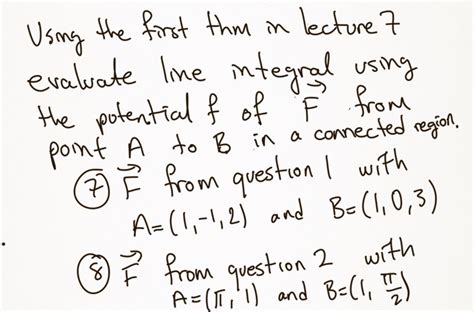 Using the first thm in lecture 7
evaluate line integral using
the potential f of F⃗ from
point A to B in a connected region.
⑦ F⃗ from question 1 with
A=(1,-1,2) and B=(1,0,3)
⑧ F⃗ from question 2 with
A=(π,1) and B=(1,π/2)